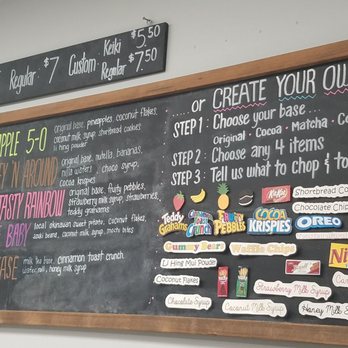 Regular $7 Custom Keiki $5.50
Regular $7.50
PPLE 5-0
original base, pineapples, coconut flakes,
coconut milk syrup, shortbread cookies,
li hing powder
EY 'N AROUND
original base, nutella, bananas,
nilla wafers, choco syrup,
cocoa krispies
TASTY RAINBOW
original base, fruity pebbles,
strawberry milk syrup, strawberries,
teddy grahams
BABY
local okinawan sweet potato, coconut flakes,
azuki beans, coconut milk syrup, mochi bites
EASE
milk tea base, cinnamon toast crunch,
honey milk syrup
... or CREATE YOUR OW
STEP 1: Choose your base...
Original · Cocoa · Matcha · Co
STEP 2: Choose any 4 items
STEP 3: Tell us what to chop & to
Teddy Grahams
FRUITY PEBBLES
COCOA KRISPIES
Shortbread Co
Chocolate Chip
OREO
Gummy Bears
Waffle Chips
Li Hing Mui Powder
Coconut Flakes
Strawberry Milk Syrup
Chocolate Syrup
Coconut Milk Syrup
Honey Milk Syrup